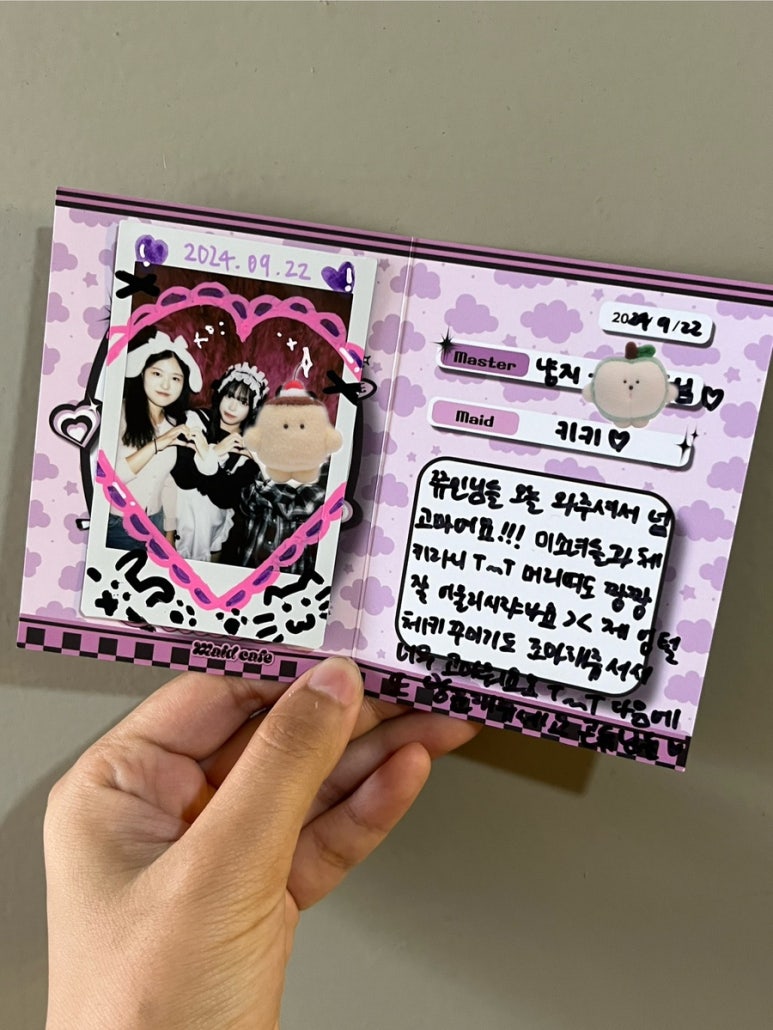 2024.09.22
maid cafe
2024 9/22
Master 냥지 님♡
Maid 키키♡
쮸인님들 오늘 와주셔서 넘
고마어요!!! 미소녀들과 체
키라니 T~T 머리띠도 짱짱
잘 어울리시랴나요 >< 제 엄털
체키 꾸미기도 조아해주셔서
너무 T~T 다음에
또